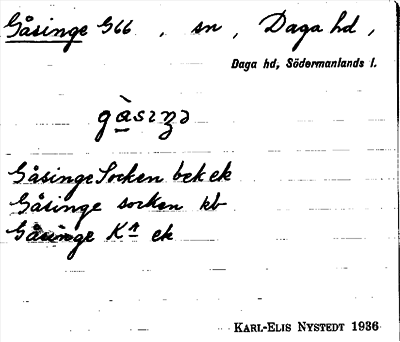 Gåsinge G66 , sn , Daga hd ,
Daga hd, Södermanlands l.
gàsıŋə
Gåsinge Socken bek ek
Gåsinge socken kb
Gåsinge Kª ek
KARL-ELIS NYSTEDT 1936